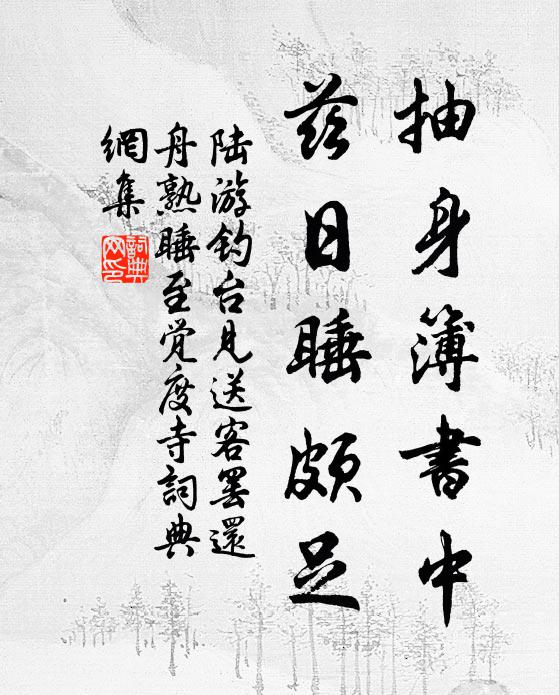 抽身簿书中
兹日睡颇足
陆游钓台见送客罢還
舟熟睡至觉度寺詞典
網集
詞典
网印